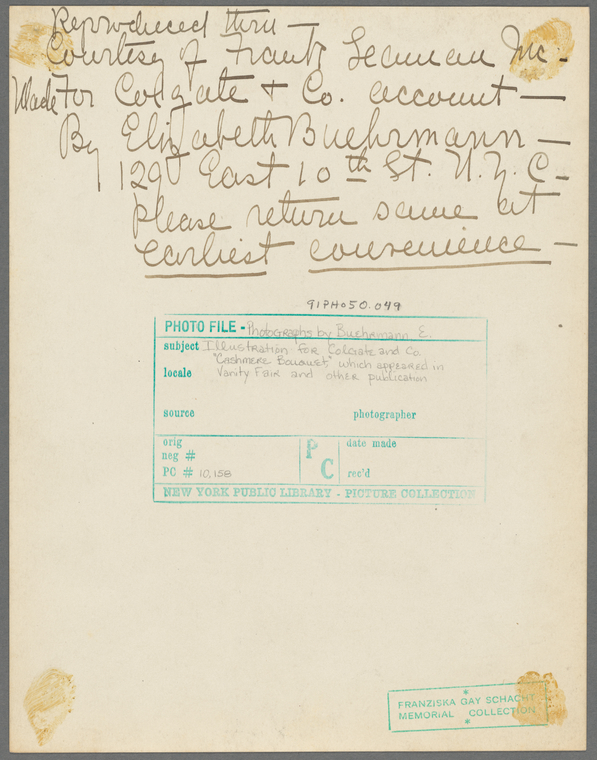 Reproduced thru —
Courtesy of Frank Seaman Inc -
Made For Colgate & Co. account —
By Elizabeth Buehrmann —
129 East 10th St. N.Y.C -
please return same at
earliest convenience —
91PH050.049
PHOTO FILE - Photographs by Buehrmann E.
subject Illustration for Colgate and Co.
"Cashmere Bouquet" which appeared in
locale Vanity Fair and other publication
source photographer
orig date made
neg #
PC # 10,158 rec'd
PC
NEW YORK PUBLIC LIBRARY - PICTURE COLLECTION
FRANZISKA GAY SCHACHT
MEMORIAL COLLECTION